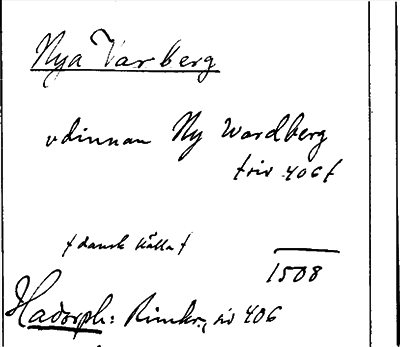 Nya Varberg
vdinnan Ny Wardberg
/ siv 406 /
/ dansk källa /
1508
Hadorph: Rimkr., siv 406